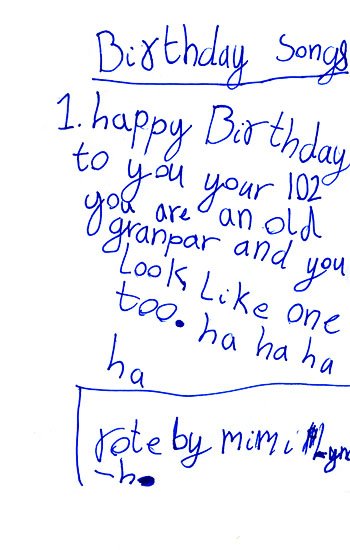 Birthday Songs
1. happy Birthday
to you your 102
you are an old
granpar and you
Look Like one
too. ha ha ha
ha
rote by mimi Lyn
-h.